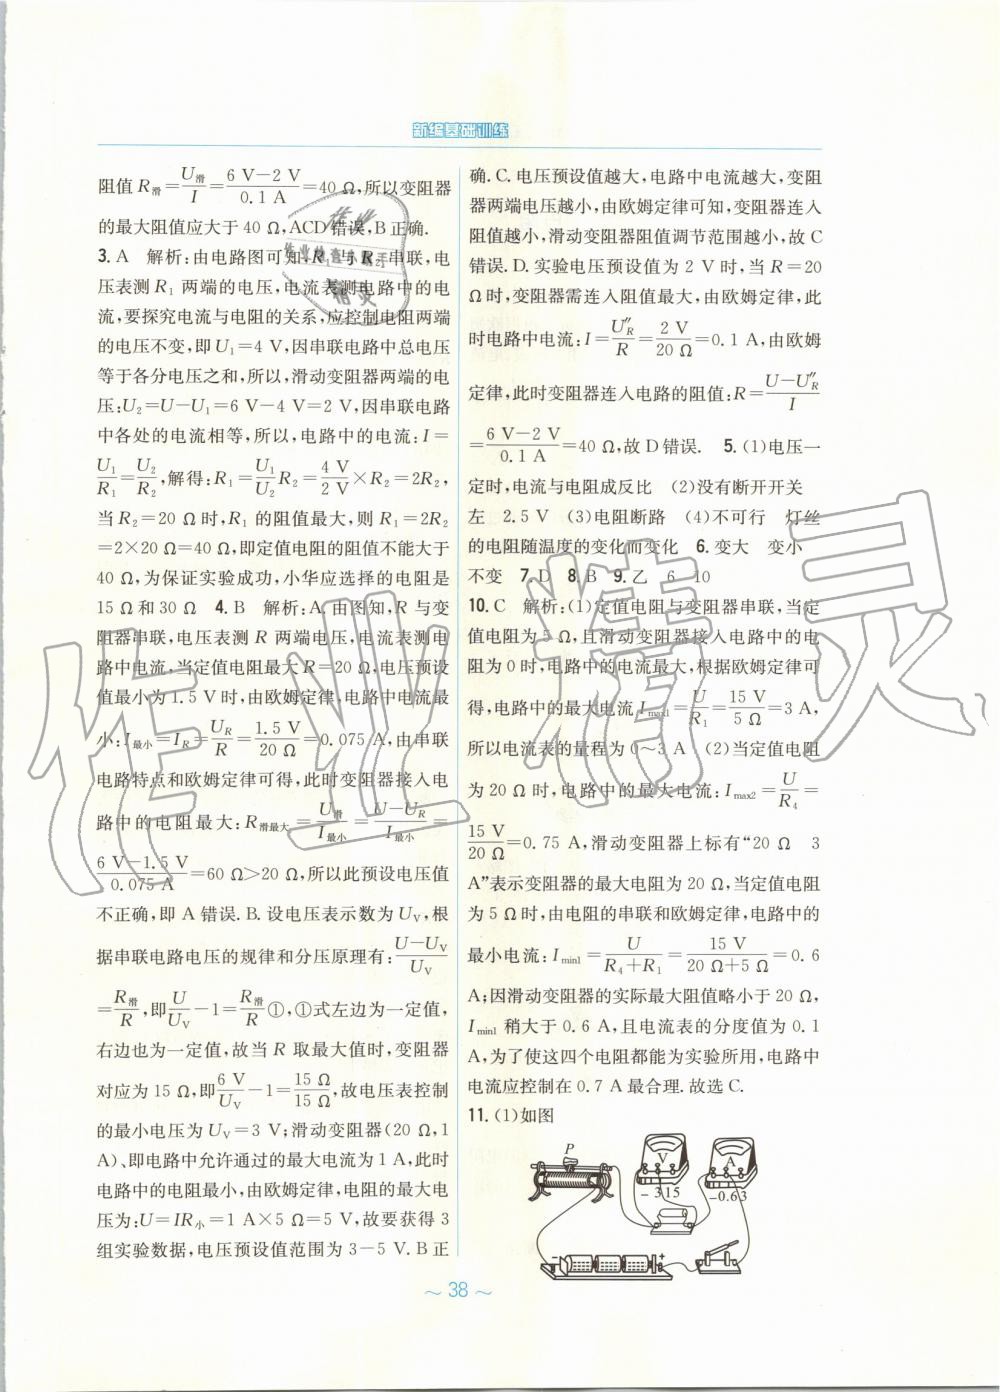 新编基础训练
阻值 R滑=U滑/I=(6 V-2 V)/(0.1 A)=40 Ω,所以变阻器
的最大阻值应大于 40 Ω,ACD错误,B正确.
3. A 解析:由电路图可知,R₁与R₂串联,电
压表测 R₁ 两端的电压,电流表测电路中的电
流,要探究电流与电阻的关系,应控制电阻两端
的电压不变,即U₁=4 V,因串联电路中总电压
等于各分电压之和,所以,滑动变阻器两端的电
压:U₂=U-U₁=6 V-4 V=2 V,因串联电路
中各处的电流相等,所以,电路中的电流:I=
U₁/R₁=U₂/R₂,解得:R₁=(U₁/U₂)R₂=(4 V/2 V)×R₂=2R₂,
当 R₂=20 Ω 时,R₁ 的阻值最大,则 R₁=2R₂
=2×20 Ω=40 Ω,即定值电阻的阻值不能大于
40 Ω,为保证实验成功,小华应选择的电阻是
15 Ω和 30 Ω 4. B 解析:A.由图知,R 与变
阻器串联,电压表测 R 两端电压,电流表测电
路中电流,当定值电阻最大R=20 Ω,电压预设
值最小为1.5 V时,由欧姆定律,电路中电流最
小:I最小=I_R=U_R/R=1.5 V/20 Ω=0.075 A,由串联
电路特点和欧姆定律可得,此时变阻器接入电
路中的电阻最大:R滑最大=U滑/I最小=(U-U_R)/I最小=
(6 V-1.5 V)/(0.075 A)=60 Ω>20 Ω,所以此预设电压值
不正确,即 A 错误. B. 设电压表示数为 U_V,根
据串联电路电压的规律和分压原理有:(U-U_V)/U_V
=R滑/R,即U/U_V-1=R滑/R①,①式左边为一定值,
右边也为一定值,故当 R 取最大值时,变阻器
对应为 15 Ω,即6 V/U_V-1=15 Ω/15 Ω,故电压表控制
的最小电压为 U_V=3 V;滑动变阻器(20 Ω,1
A)、即电路中允许通过的最大电流为1 A,此时
电路中的电阻最小,由欧姆定律,电阻的最大电
压为:U=IR小=1 A×5 Ω=5 V,故要获得 3
组实验数据,电压预设值范围为 3-5 V. B 正
确. C. 电压预设值越大,电路中电流越大,变阻
器两端电压越小,由欧姆定律可知,变阻器连入
阻值越小,滑动变阻器阻值调节范围越小,故 C
错误. D. 实验电压预设值为 2 V 时,当 R=20
Ω时,变阻器需连入阻值最大,由欧姆定律,此
时电路中电流:I=U″_R/R=2 V/20 Ω=0.1 A,由欧姆
定律,此时变阻器连入电路的阻值:R=(U-U″_R)/I
=(6 V-2 V)/(0.1 A)=40 Ω,故 D 错误. 5. (1)电压一
定时,电流与电阻成反比 (2)没有断开开关
左 2.5 V (3)电阻断路 (4)不可行 灯丝
的电阻随温度的变化而变化 6. 变大 变小
不变 7. D 8. B 9. 乙 6 10
10. C 解析:(1)定值电阻与变阻器串联,当定
值电阻为5 Ω,且滑动变阻器接入电路中的电
阻为0时,电路中的电流最大,根据欧姆定律可
得,电路中的最大电流 I max1=U/R₁=15 V/5 Ω=3 A,
所以电流表的量程为0~3 A (2)当定值电阻
为 20 Ω时,电路中的最大电流:I max2=U/R₄=
15 V/20 Ω=0.75 A,滑动变阻器上标有“20 Ω 3
A”表示变阻器的最大电阻为 20 Ω,当定值电阻
为5 Ω时,由电阻的串联和欧姆定律,电路中的
最小电流:I min1=U/(R₄+R₁)=15 V/(20 Ω+5 Ω)=0.6
A;因滑动变阻器的实际最大阻值略小于20 Ω,
I min1 稍大于 0.6 A,且电流表的分度值为 0.1
A,为了使这四个电阻都能为实验所用,电路中
电流应控制在 0.7 A 最合理. 故选 C.
11. (1)如图
P
V
A
- 3 15
-0.6 3
-
+
~ 38 ~
作业精灵
作业
作业检查小帮手
精灵